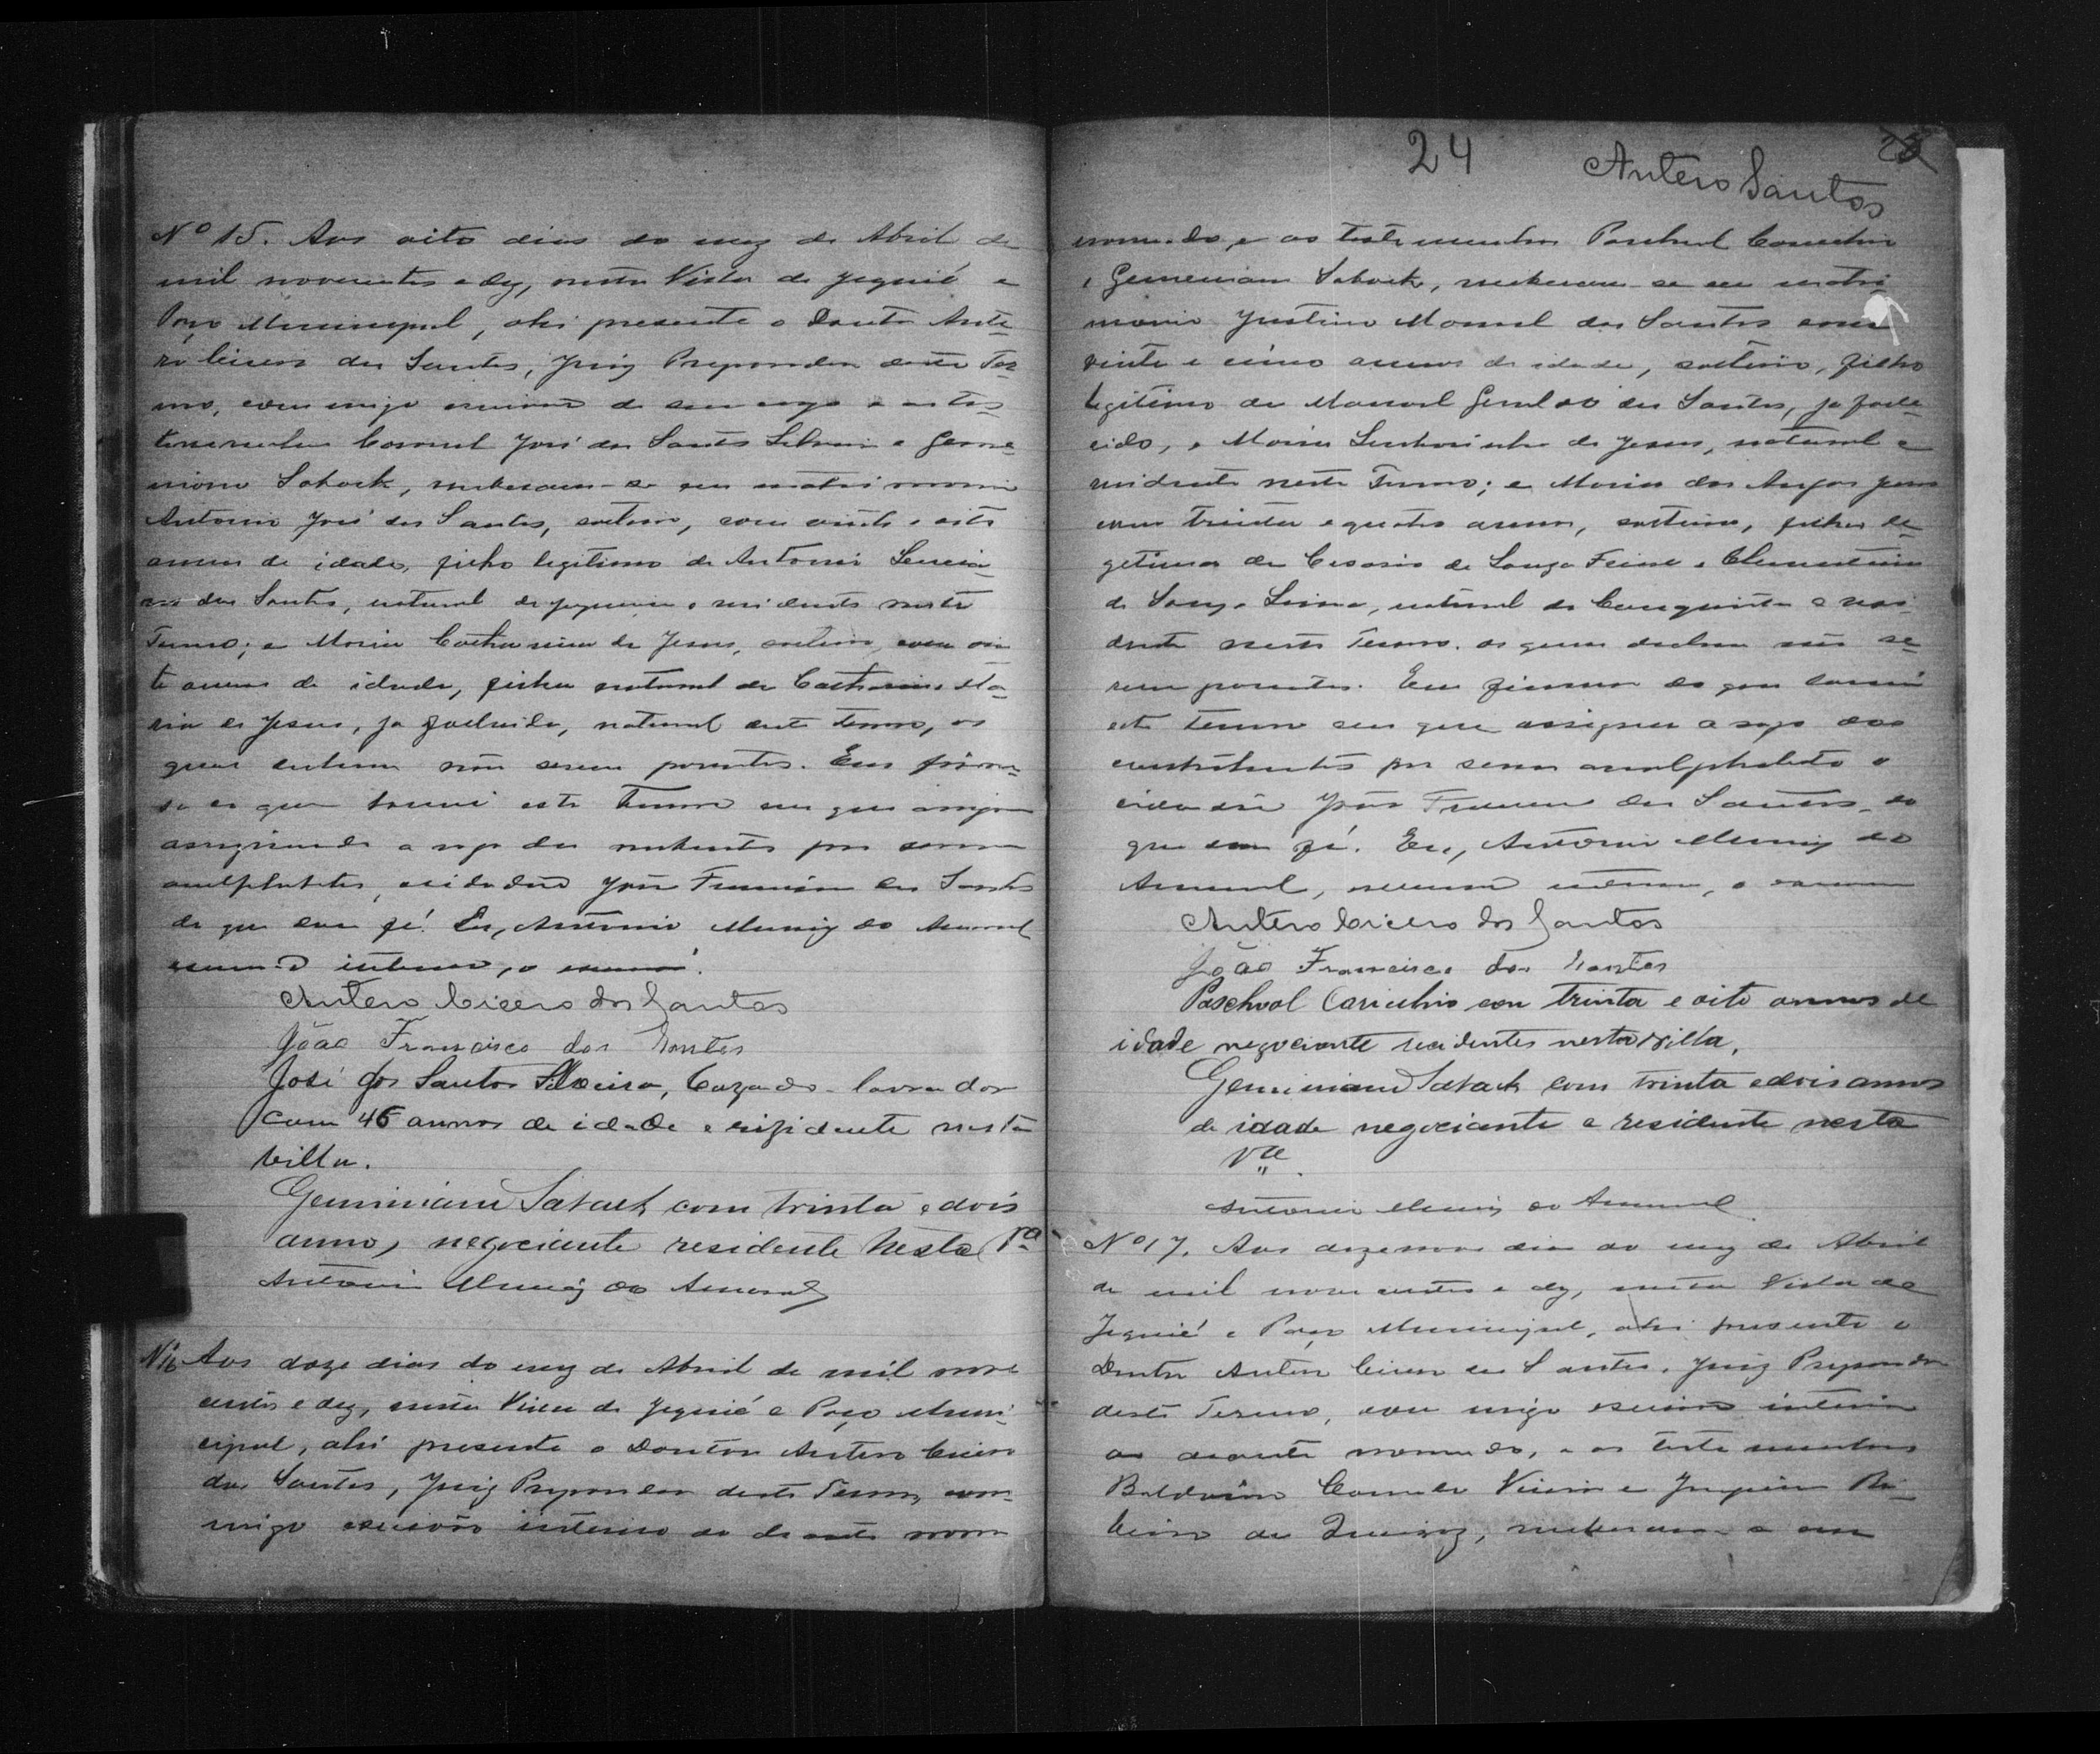 Nº 15. Aos oito dias do mez de Abril de
mil novecentos e dez, nesta Villa de Jequié e
Paço Municipal, ahi presente o Doutor Ante-
ro Cicero dos Santos, Juiz Preparador deste Ter-
mo, commigo escrivão de seu cargo e as tes-
temunhas Coronel José dos Santos Silveira e Gemi-
niano Saback, receberam-se em matrimonio
Antonio José dos Santos, solteiro, com vinte e oito
annos de idade, filho legitimo de Antonio
dos Santos, natural de e residente neste
Termo; e Maria Catharina de Jesus, solteira, com vin
te annos de idade, filha natural de Catharina Ma-
ria de Jesus, ja fallecida, natural deste Termo, os
quaes declaram não serem parentes. Em firme-
sa do que lavrei este Termo em que assigna
assignando a rogo dos nubentes por serem
analphabetos, o cidadão João Francisco dos Santos
do que dou fé. Eu, Antonio Muniz do Amaral
escrivão interino, o escrevi.
Antero Cicero dos Santos
João Francisco dos Santos
José dos Santos Silveira, Cazado lavrador
com 46 annos de idade e rizidente nesta
Villa.
Geminiano Saback com trinta e dois
anno, negociante residente nesta Vª
Antonio Muniz do Amaral
Nº 16 Aos doze dias do mez de Abril de mil nove
centos e dez, nesta Villa de Jequié e Paço Muni-
cipal, ahi presente o Doutor Antero Cicero
dos Santos, Juiz Preparador deste Termo, com-
migo escrivão interino ao deante nome
24
Antero Santos
nomeado, e as testemunhas Paschoal
e Geminiano Saback, receberam-se em matri-
monio Justino Manoel dos Santos com
vinte e cinco annos de idade, solteiro, filho
legitimo de Manoel Geraldo dos Santos, ja falle-
cido, e Maria Senhorinha de Jesus, natural e
residente neste Termo; e Maria dos Anjos Jesus
com trinta e quatro annos, solteira, filha le-
gitima de Cesario de Souza Freire e Clementina
de Souza Lima, natural de Conquista e resi-
dente neste Termo. os quaes declaram não se-
rem parentes. Em firmesa do que lavrei
este termo em que assigna a rogo dos
contrahentes por serem analphabetos o
cidadão João Francisco dos Santos, do
que dou fé. Eu, Antonio Muniz do
Amaral, escrivão interino, o escrevi
Antero Cicero dos Santos
João Francisco dos Santos
Paschoal com trinta e oito annos de
idade negociante residentes nesta Villa,
Geminiano Saback com trinta e dois annos
de idade negociante e residente nesta
Vª
Antonio Muniz do Amaral
Nº 17. Aos dezenove dias do mez de Abril
de mil novecentos e dez, nesta Villa de
Jequié e Paço Municipal, ahi presente o
Doutor Antero Cicero dos Santos, Juiz Preparador
deste Termo, commigo escrivão interino
ao deante nomeado, e as testemunhas
Balduino Vieira e Joaquim Ri-
beiro de Queiroz, receberam-se em